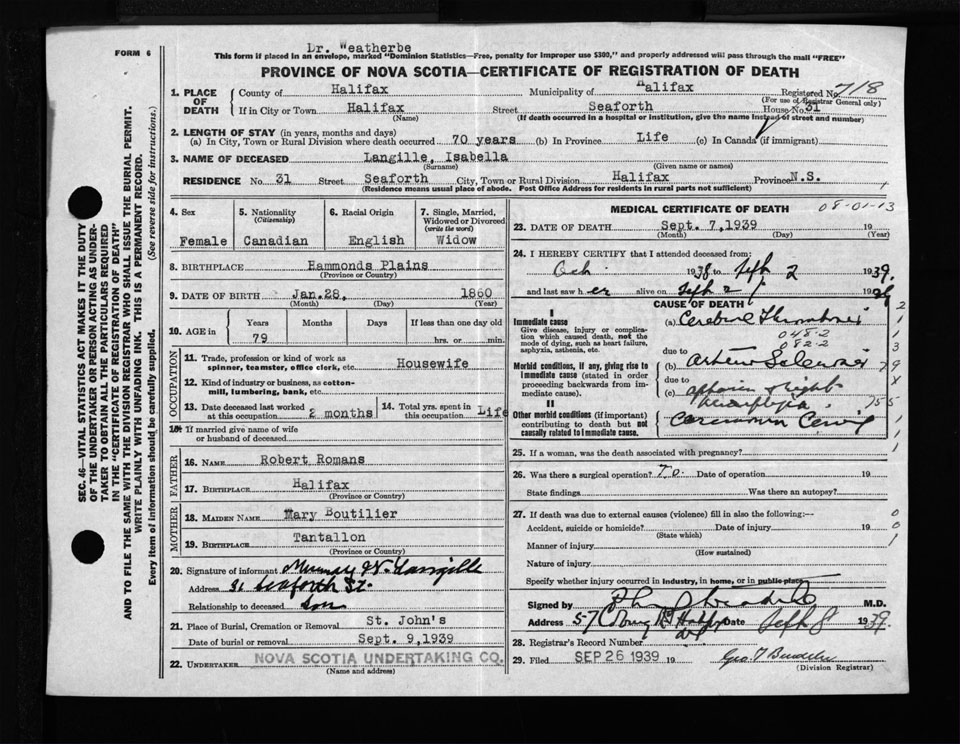 Dr. Weatherbe
FORM 6
This form if placed in an envelope, marked "Dominion Statistics—Free, penalty for improper use $300," and properly addressed will pass through the mail "FREE"
PROVINCE OF NOVA SCOTIA—CERTIFICATE OF REGISTRATION OF DEATH
1. PLACE OF DEATH
County of Halifax Municipality of Halifax Registered No. 718
(For use of Registrar General only)
If in City or Town Halifax Street Seaforth House No. 31
(Name) (If death occurred in a hospital or institution, give the name instead of street and number)
2. LENGTH OF STAY (in years, months and days)
(a) In City, Town or Rural Division where death occurred 70 years (b) In Province Life (c) In Canada (if immigrant)
3. NAME OF DECEASED Langille, Isabella
(Surname) (Given name or names)
RESIDENCE No. 31 Street Seaforth City, Town or Rural Division Halifax Province N.S.
(Residence means usual place of abode. Post Office Address for residents in rural parts not sufficient)
4. Sex Female
5. Nationality (Citizenship) Canadian
6. Racial Origin English
7. Single, Married, Widowed or Divorced (write the word) Widow
8. BIRTHPLACE Hammonds Plains
(Province or Country)
9. DATE OF BIRTH Jan. 28, 1860
(Month) (Day) (Year)
10. AGE in Years Months Days If less than one day old
79 hrs. or min.
OCCUPATION
11. Trade, profession or kind of work as spinner, teamster, office clerk, etc. Housewife
12. Kind of industry or business, as cotton-mill, lumbering, bank, etc.
13. Date deceased last worked at this occupation 2 months
14. Total yrs. spent in this occupation Life
If married give name of wife or husband of deceased
FATHER
16. NAME Robert Romans
17. BIRTHPLACE Halifax
(Province or Country)
MOTHER
18. MAIDEN NAME Mary Boutilier
19. BIRTHPLACE Tantallon
(Province or Country)
20. Signature of informant Murray W. Langille
Address 31 Seaforth St.
Relationship to deceased Son
21. Place of Burial, Cremation or Removal St. John's
Date of burial or removal Sept. 9, 1939
22. UNDERTAKER NOVA SCOTIA UNDERTAKING CO.
(Name and address)
MEDICAL CERTIFICATE OF DEATH
08-01-13
23. DATE OF DEATH Sept. 7, 1939 19
(Month) (Day) (Year)
24. I HEREBY CERTIFY that I attended deceased from
Oct 1938 to Sept 2 1939.
and last saw her alive on Sept 2 19
CAUSE OF DEATH
I
Immediate cause
Give disease, injury or complication which caused death, not the mode of dying, such as heart failure, asphyxia, asthenia, etc.
(a) Cerebral Thrombosis
048-2
082-2
due to
Morbid conditions, if any, giving rise to immediate cause (stated in order proceeding backwards from immediate cause).
(b) Arterio Sclerosis
due to
(c) right
hemiplegia
II
Other morbid conditions (if important) contributing to death but not causally related to immediate cause.
25. If a woman, was the death associated with pregnancy?
26. Was there a surgical operation? Date of operation 19
State findings Was there an autopsy?
27. If death was due to external causes (violence) fill in also the following:—
Accident, suicide or homicide? Date of injury 19
(State which)
Manner of injury
(How sustained)
Nature of injury
Specify whether injury occurred in industry, in home, or in public place
Signed by M.D.
Address 57 Date Sept 8 1939.
28. Registrar's Record Number
29. Filed SEP 26 1939 19
(Division Registrar)
SEC. 46—VITAL STATISTICS ACT MAKES IT THE DUTY
OF THE UNDERTAKER OR PERSON ACTING AS UNDER-
TAKER TO OBTAIN ALL THE PARTICULARS REQUIRED
IN THE "CERTIFICATE OF REGISTRATION OF DEATH"
AND TO FILE THE SAME WITH THE DIVISION REGISTRAR WHO SHALL ISSUE THE BURIAL PERMIT.
WRITE PLAINLY WITH UNFADING INK. THIS IS A PERMANENT RECORD.
Every item of information should be carefully supplied. (See reverse side for instructions.)